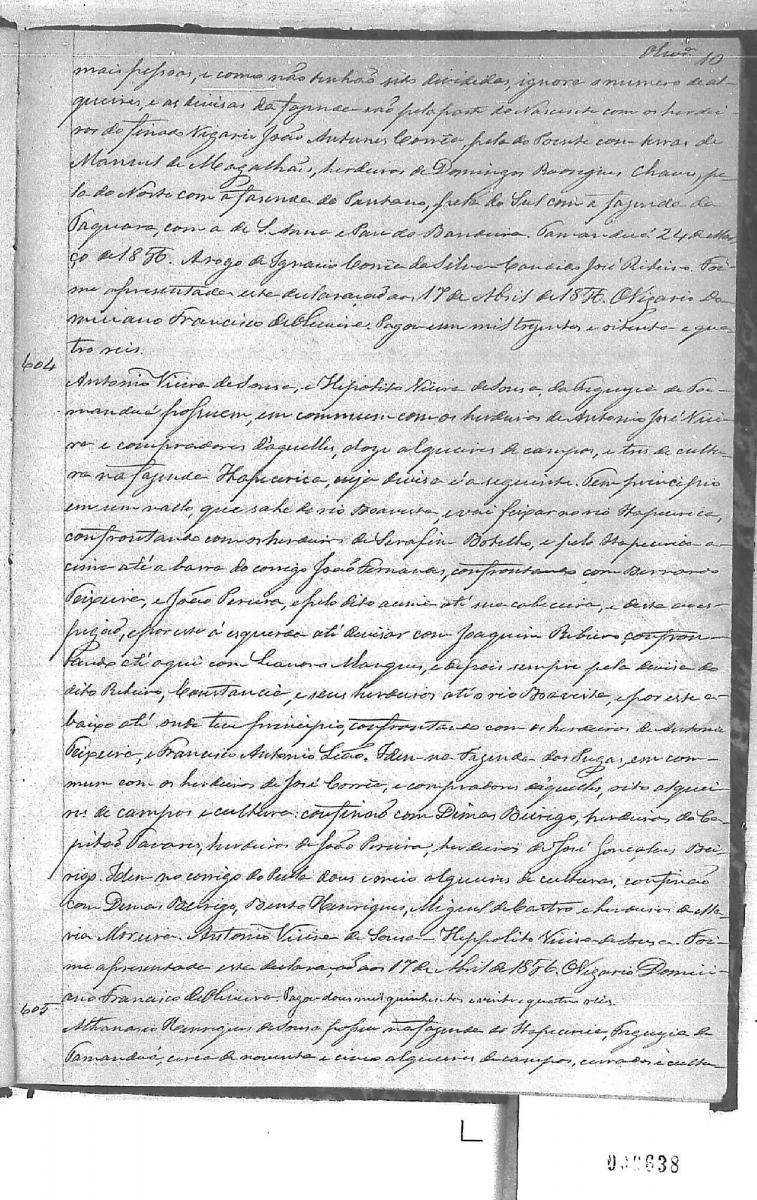 Olivrª 10
mais pessoas, e como não tenhão sido divididas, ignora o numero de al-
queires, e as divisas da fazenda são pela parte do Nascente com os herdei-
ros do finado Vigario João Antunes Corrêa, pela do Poente com terras de
Manoel de Magalhães, herdeiros de Domingos Rodrigues Chaves, pe-
la do Norte com a fazenda do Pantano, pela do Sul com a fazenda da
Taquara, com a de S. Anna e Pari do Bandeira. Tamanduá 24 de Mar-
ço de 1856. Arogo de Ignacio Corrêa da Silva Candido José Ribeiro. Foi-
me apresentada esta declaração aos 17 de Abril de 1856. O Vigario Do-
miciano Francisco de Oliveira. Pagou um mil trezentos e oitenta e qua-
tro reis.
604
Antonio Vieira de Sousa, e Hipolito Vieira de Sousa, da Freguezia de Ta-
manduá possuem, em commum com os herdeiros de Antonio José Viei-
ra e compradores d'aquelles, doze alqueires de campos, e tres de cultu-
ra na fazenda Itapecerica, cuja divisa é a seguinte. Tem principio
em um vallo, que sahe do rio Boavista, e vai feixar no rio Itapecerica,
confrontando com os herdeiros de Serafim Botelho, e pelo Itapecerica a-
cima até a barra do corrego João Fernandes, confrontando com Bernardo
Teixeira, e João Pereira, e pelo dito acima até sua cabeceira, e desta ao es-
pigão, e por este á esquerda até divisar com Joaquim Ribeiro confron-
tando até aqui com Leandro Marques, e depois sempre pela divisa do
dito Ribeiro, Constancia, e seus herdeiros até o rio Boavista, e por este a-
baixo até onde teve principio, confrontando com os herdeiros de Antonio
Teixeira, e Francisco Antonio Leão. Idem na Fazenda dos Pugas, em com-
mum com os herdeiros de José Corrêa, e compradores d'aquelles, oito alquei-
res de campos e cultura: confinão com Dimas Beirigo, herdeiros do Ca-
pitão Tavares, herdeiros de João Pereira, herdeiros de José Gonçalves Bei-
rigo. Idem no corrego do dous e meio alqueires de culturas, confinão
com Dimas Beirigo, Bento Henriques, Miguel de Castro, e herdeiros de Ma-
ria Moreira. Antonio Vieira de Sousa - Hippolito Vieira de Sousa. Foi-
me apresentada esta declaração aos 17 de Abril de 1856. O Vigario Domici-
ano Francisco de Oliveira. Pagou dous mil quinhentos e vinte e quatro reis.
605
Athanasio Henriques de Sousa possue na fazenda do Itapecerica, Freguezia de
Tamanduá, cerca de noventa e cinco alqueires de campos, cerrados e cultu-
030638